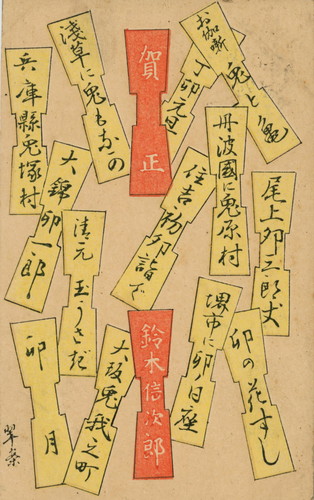 お伽噺 兎と亀
丁卯元旦
賀正
淺草に兎もなの
兵庫縣兎塚村
尾上卯三郎丈
丹波國に兎原村
住吉初卯詣で
大錦卯一郎
清元 玉うさぎ
卯の花すし
堺市に卯日座
鈴木信次郎
大阪兎我之町
卯月
翠桑